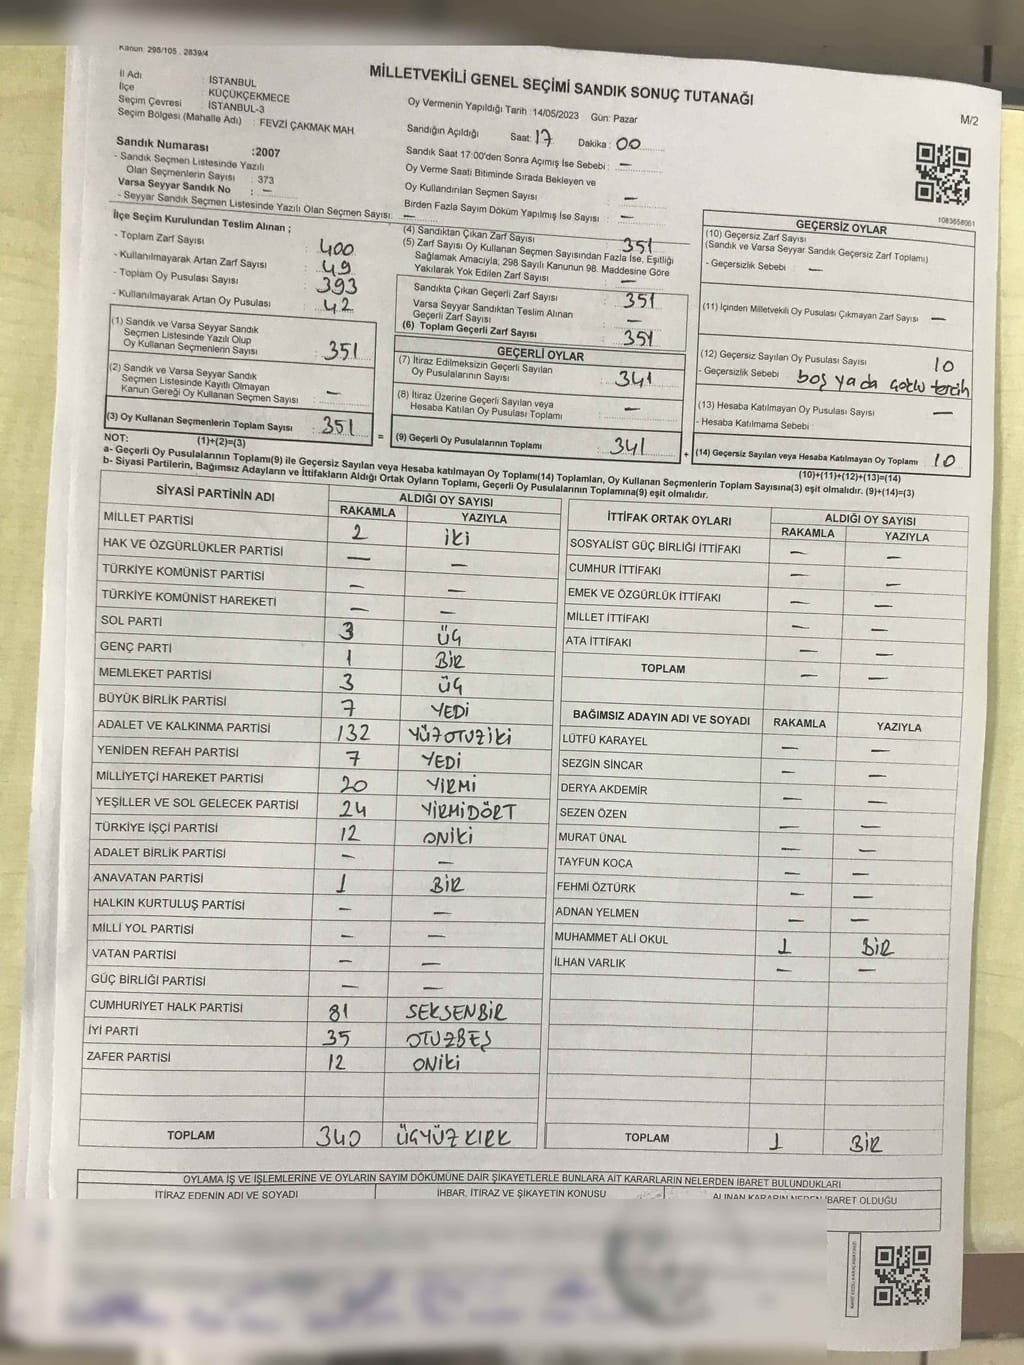 Kanun: 298/105 . 2839/4
MİLLETVEKİLİ GENEL SEÇİMİ SANDIK SONUÇ TUTANAĞI
M/2
İl Adı : İSTANBUL
İlçe : KÜÇÜKÇEKMECE
Seçim Çevresi : İSTANBUL-3
Seçim Bölgesi (Mahalle Adı) : FEVZİ ÇAKMAK MAH
Sandık Numarası :2007
- Sandık Seçmen Listesinde Yazılı
Olan Seçmenlerin Sayısı : 373
Varsa Seyyar Sandık No : —
- Seyyar Sandık Seçmen Listesinde Yazılı Olan Seçmen Sayısı: —
Oy Vermenin Yapıldığı Tarih :14/05/2023 Gün: Pazar
Sandığın Açıldığı Saat: 17 Dakika : 00
Sandık Saat 17:00'den Sonra Açımış İse Sebebi : —
Oy Verme Saati Bitiminde Sırada Bekleyen ve
Oy Kullandırılan Seçmen Sayısı : —
Birden Fazla Sayım Döküm Yapılmış İse Sayısı : —
İlçe Seçim Kurulundan Teslim Alınan ;
- Toplam Zarf Sayısı : 400
- Kullanılmayarak Artan Zarf Sayısı : 49
- Toplam Oy Pusulası Sayısı : 393
- Kullanılmayarak Artan Oy Pusulası : 42
(1) Sandık ve Varsa Seyyar Sandık
Seçmen Listesinde Yazılı Olup
Oy Kullanan Seçmenlerin Sayısı : 351
(2) Sandık ve Varsa Seyyar Sandık
Seçmen Listesinde Kayıtlı Olmayan
Kanun Gereği Oy Kullanan Seçmen Sayısı : —
(3) Oy Kullanan Seçmenlerin Toplam Sayısı : 351
(4) Sandıktan Çıkan Zarf Sayısı : 351
(5) Zarf Sayısı Oy Kullanan Seçmen Sayısından Fazla İse, Eşitliği
Sağlamak Amacıyla; 298 Sayılı Kanunun 98. Maddesine Göre
Yakılarak Yok Edilen Zarf Sayısı : —
Sandıkta Çıkan Geçerli Zarf Sayısı : 351
Varsa Seyyar Sandıktan Teslim Alınan
Geçerli Zarf Sayısı : —
(6) Toplam Geçerli Zarf Sayısı : 351
GEÇERLİ OYLAR
(7) İtiraz Edilmeksizin Geçerli Sayılan
Oy Pusulalarının Sayısı : 341
(8) İtiraz Üzerine Geçerli Sayılan veya
Hesaba Katılan Oy Pusulası Toplamı : —
= (9) Geçerli Oy Pusulalarının Toplamı : 341
1083658061
GEÇERSİZ OYLAR
(10) Geçersiz Zarf Sayısı
(Sandık ve Varsa Seyyar Sandık Geçersiz Zarf Toplamı)
- Geçersizlik Sebebi : —
(11) İçinden Milletvekili Oy Pusulası Çıkmayan Zarf Sayısı : —
(12) Geçersiz Sayılan Oy Pusulası Sayısı : 10
- Geçersizlik Sebebi : boş yada çoklu tercih
(13) Hesaba Katılmayan Oy Pusulası Sayısı : —
- Hesaba Katılmama Sebebi :
+ (14) Geçersiz Sayılan veya Hesaba Katılmayan Oy Toplamı 10
NOT: (1)+(2)=(3)
(10)+(11)+(12)+(13)=(14)
a- Geçerli Oy Pusulasının Toplamı(9) ile Geçersiz Sayılan veya Hesaba katılmayan Oy Toplamı(14) Toplamları, Oy Kullanan Seçmenlerin Toplam Sayısına(3) eşit olmalıdır. (9)+(14)=(3)
b- Siyasi Partilerin, Bağımsız Adayların ve İttifakların Aldığı Ortak Oyların Toplamı, Geçerli Oy Pusulalarının Toplamına(9) eşit olmalıdır.
SİYASİ PARTİNİN ADI ALDIĞI OY SAYISI
RAKAMLA YAZIYLA
MİLLET PARTİSİ 2 İKİ
HAK VE ÖZGÜRLÜKLER PARTİSİ — —
TÜRKİYE KOMÜNİST PARTİSİ — —
TÜRKİYE KOMÜNİST HAREKETİ — —
SOL PARTİ 3 ÜÇ
GENÇ PARTİ 1 BİR
MEMLEKET PARTİSİ 3 ÜÇ
BÜYÜK BİRLİK PARTİSİ 7 YEDİ
ADALET VE KALKINMA PARTİSİ 132 YÜZOTUZİKİ
YENİDEN REFAH PARTİSİ 7 YEDİ
MİLLİYETÇİ HAREKET PARTİSİ 20 YİRMİ
YEŞİLLER VE SOL GELECEK PARTİSİ 24 YİRMİDÖRT
TÜRKİYE İŞÇİ PARTİSİ 12 ONİKİ
ADALET BİRLİK PARTİSİ — —
ANAVATAN PARTİSİ 1 BİR
HALKIN KURTULUŞ PARTİSİ — —
MİLLİ YOL PARTİSİ — —
VATAN PARTİSİ — —
GÜÇ BİRLİĞİ PARTİSİ — —
CUMHURİYET HALK PARTİSİ 81 SEKSENBİR
İYİ PARTİ 35 OTUZBEŞ
ZAFER PARTİSİ 12 ONİKİ
TOPLAM 340 ÜÇYÜZ KIRK
İTTİFAK ORTAK OYLARI ALDIĞI OY SAYISI
RAKAMLA YAZIYLA
SOSYALİST GÜÇ BİRLİĞİ İTTİFAKI — —
CUMHUR İTTİFAKI — —
EMEK VE ÖZGÜRLÜK İTTİFAKI — —
MİLLET İTTİFAKI — —
ATA İTTİFAKI — —
TOPLAM — —
BAĞIMSIZ ADAYIN ADI VE SOYADI RAKAMLA YAZIYLA
LÜTFÜ KARAYEL — —
SEZGİN SİNCAR — —
DERYA AKDEMİR — —
SEZEN ÖZEN — —
MURAT ÜNAL — —
TAYFUN KOCA — —
FEHMİ ÖZTÜRK — —
ADNAN YELMEN — —
MUHAMMET ALİ OKUL 1 BİR
İLHAN VARLIK — —
TOPLAM 1 BİR
OYLAMA İŞ VE İŞLEMLERİNE VE OYLARIN SAYIM DÖKÜMÜNE DAİR ŞİKAYETLERLE BUNLARA AİT KARARLARIN NELERDEN İBARET BULUNDUKLARI
İTİRAZ EDENİN ADI VE SOYADI İHBAR, İTİRAZ VE ŞİKAYETİN KONUSU ALINAN KARARIN NEDEN İBARET OLDUĞU